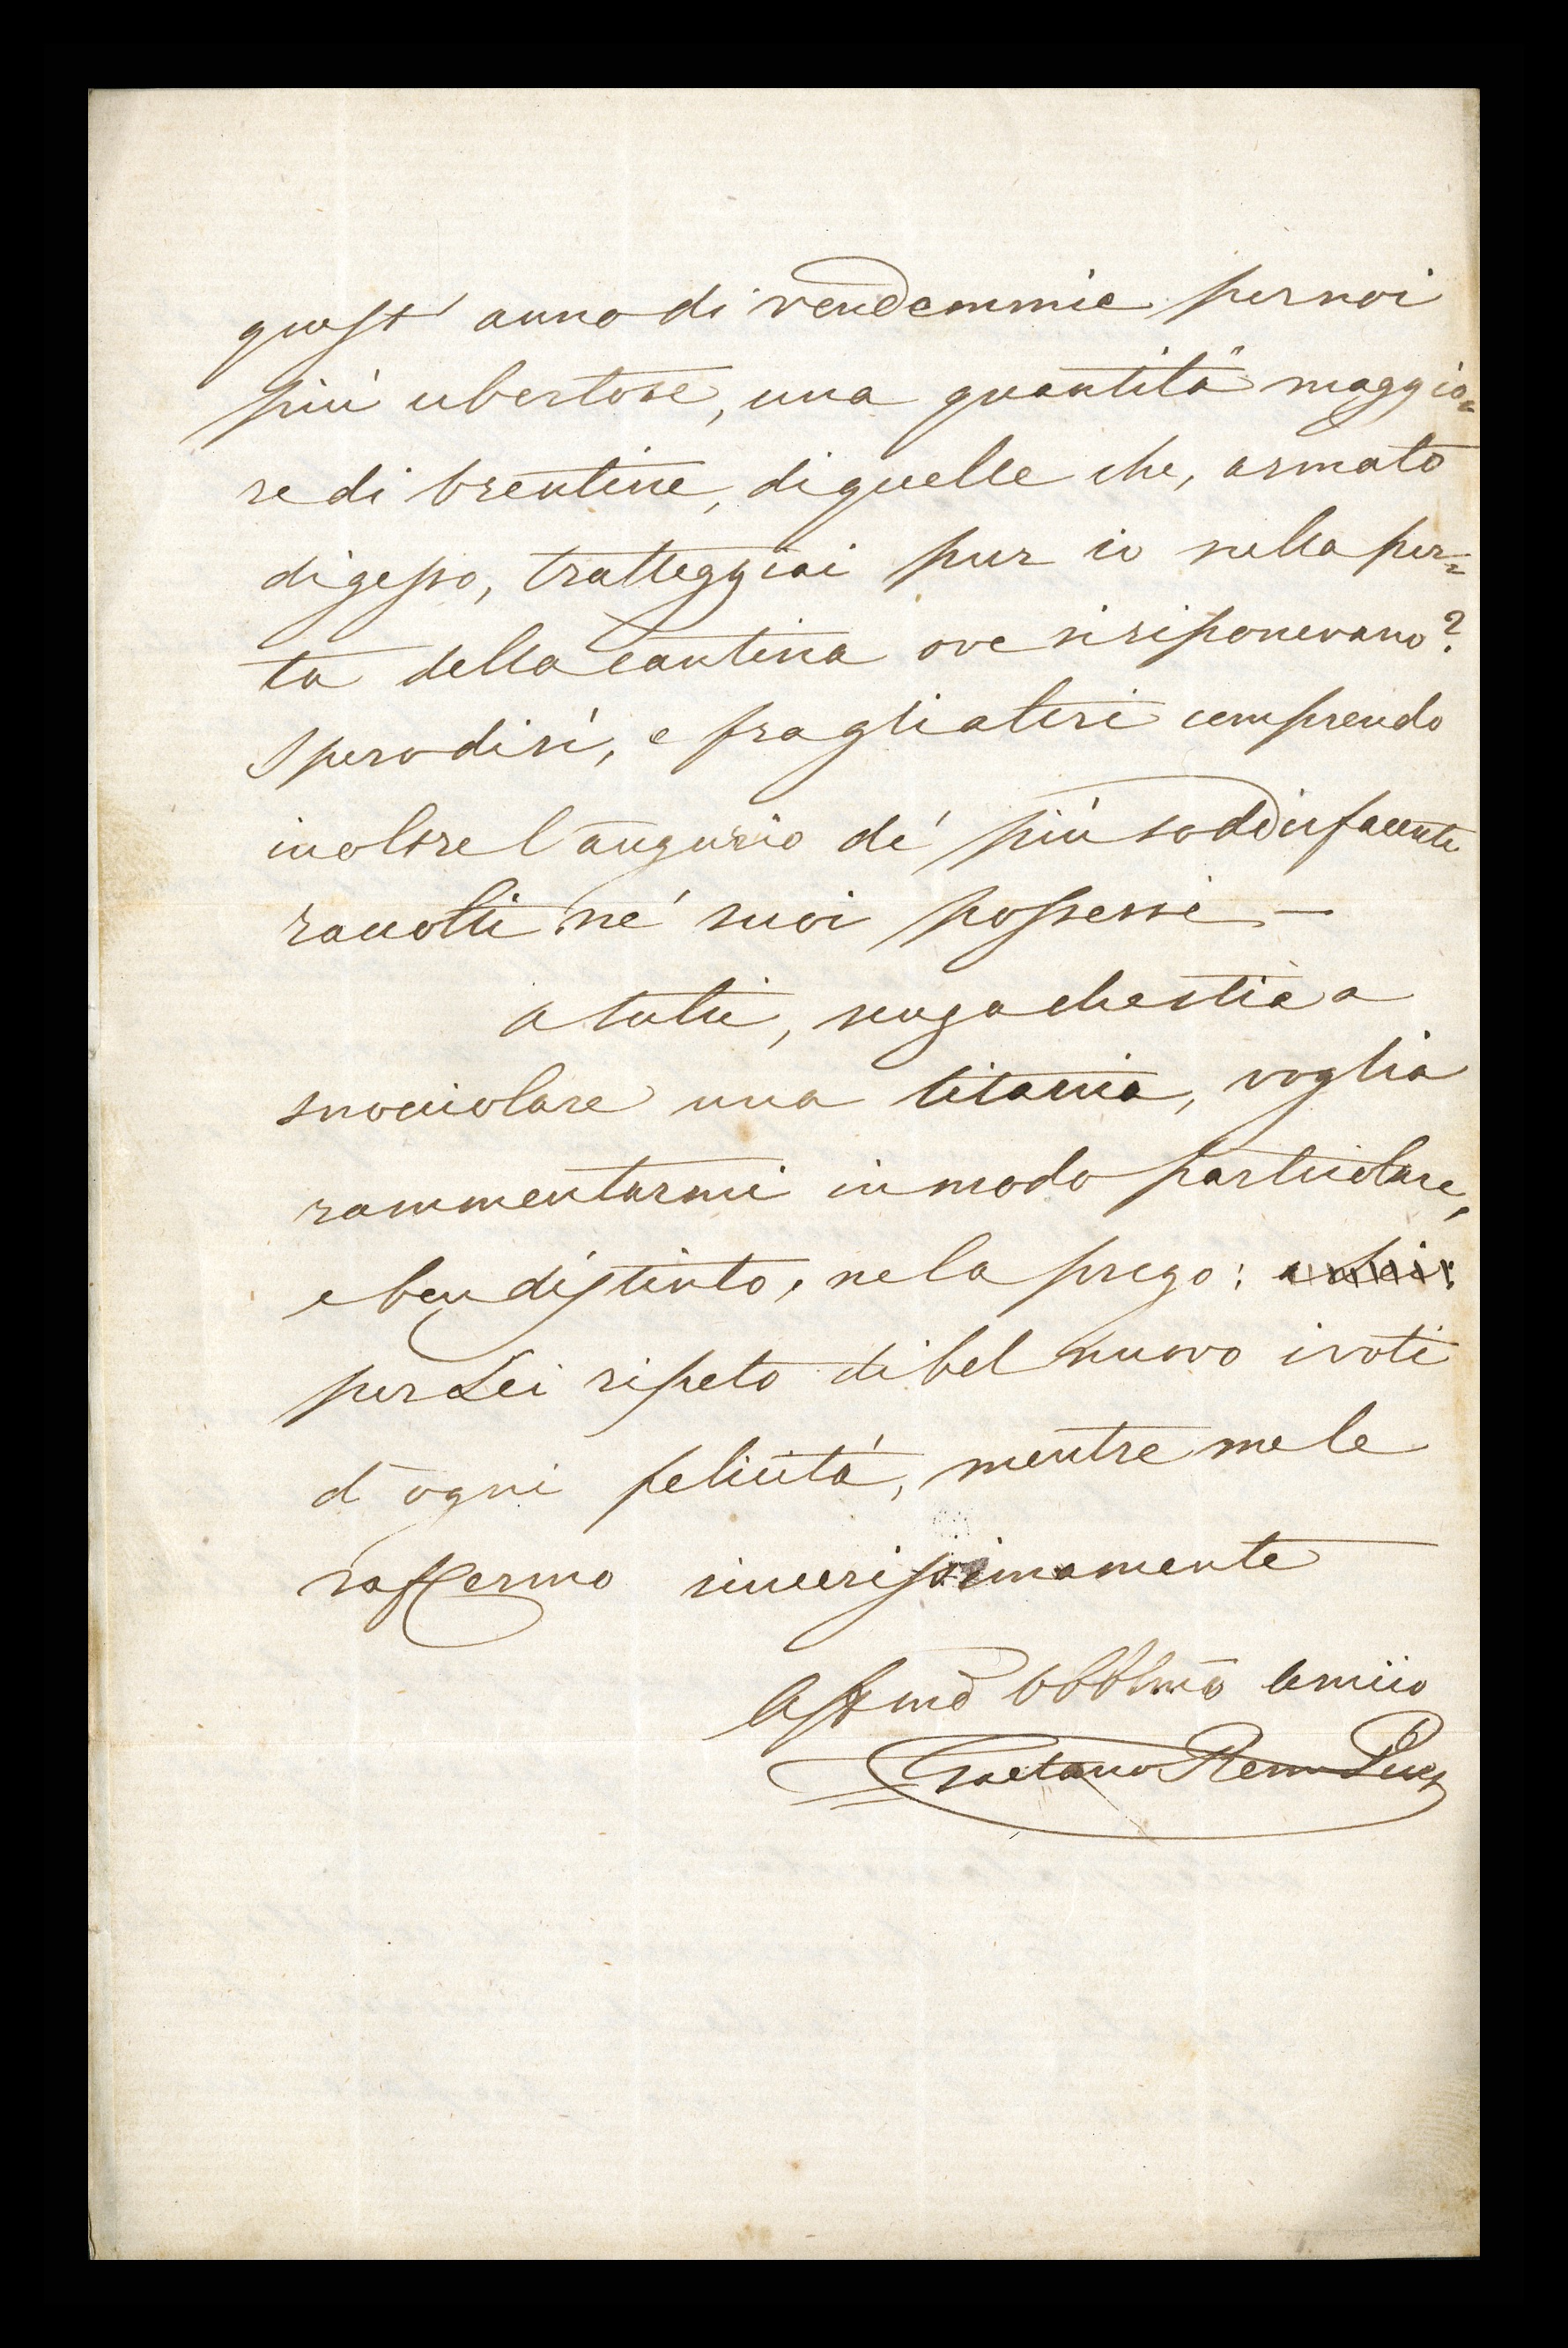 quest' anno di vendemmie per noi
più ubertose, una quantità maggio=
re di brentine, di quelle che, armato
di gesso, tratteggiai pur io nella por=
ta della cantina ove si riponevano?
Spero di sì, e fra gli altri comprendo
inoltre l'augurio de' più soddisfacenti
raccolti ne' suoi possessi —
A tutti, senza che stia a
snocciolare una litania, voglia
rammentarmi in modo particolare,
e ben distinto, ne la prego:
per Lei ripeto di bel nuovo i voti
d'ogni felicità, mentre me le
raffermo sincerissimamente
Affmo Obblmo Amico
Gaetano